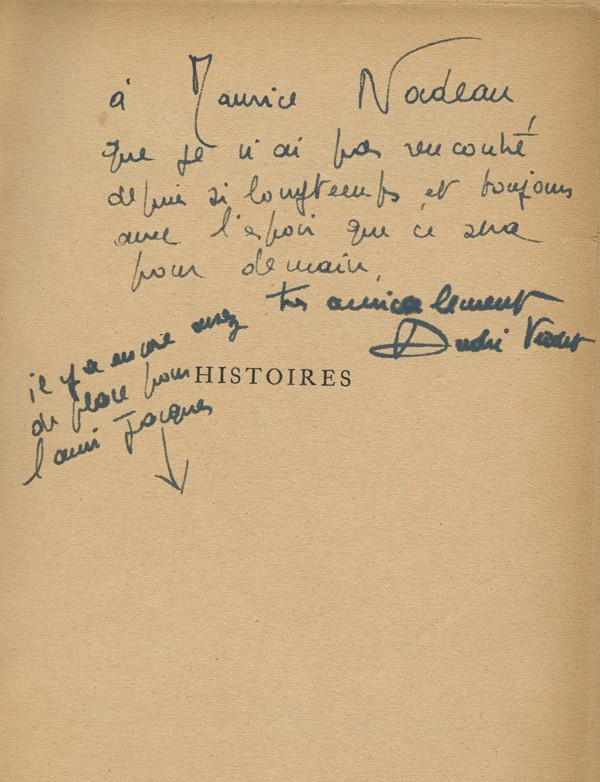 à Maurice Nadeau,
que je n'ai pas rencontré
depuis si longtemps et toujours
avec l'espoir que ce sera
pour demain,
très amicalement
André Verdet
il y a encore assez
de place pour
l'ami Jacques
HISTOIRES